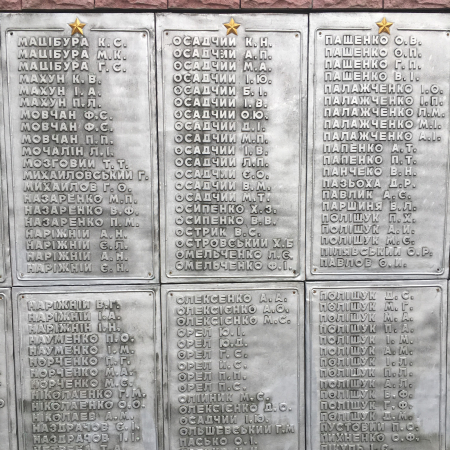 МАЦІБУРА К.С.
МАЦІБУРА М.К.
МАЦІБУРА Г.С.
МАХУН К.В.
МАХУН І.А.
МАХУН П.Л.
МОВЧАН Ф.С.
МОВЧАН Ф.С.
МОВЧАН П.П.
МОЧАЛІН Л.І.
МОЗГОВИЙ Т.Т.
МИХАЙЛОВСЬКИЙ Г.
МИХАЙЛОВ Г.О.
НАЗАРЕНКО М.П.
НАЗАРЕНКО В.Ф.
НАСАРЕНКО П.М.
НАРІЖНІЙ А.Н.
НАРІЖНІЙ Є.Л.
НАРІЖНІЙ А.Н.
НАРІЖНІЙ Є.Н.
ОСАДЧИЙ К.Н.
ОСАДЧИЙ А.П.
ОСАДЧИЙ М.А.
ОСАДЧИЙ І.Ю.
ОСАДЧИЙ Б.І.
ОСАДЧИЙ І.В.
ОСАДЧИЙ О.Ю.
ОСАДЧИЙ Д.І.
ОСАДЧИЙ М.П.
ОСАДЧИЙ І.В.
ОСАДЧИЙ Л.П.
ОСАДЧИЙ Є.О.
ОСАДЧИЙ В.М.
ОСАДЧИЙ М.Т.
ОСИПЕНКО Х.З.
ОСИПЕНКО В.В.
ОСТРИК В.С.
ОСТРОВСЬКИЙ Х.Б
ОМЕЛЬЧЕНКО Л.С.
ОМЕЛЬЧЕНКО Ф.І.
ПАЩЕНКО О.В.
ПАЩЕНКО О.П.
ПАЩЕНКО Г.П.
ПАЩЕНКО В.І.
ПАЛАЖЧЕНКО І.О.
ПАЛАЖЧЕНКО І.П.
ПАЛАЖЧЕНКО Л.М.
ПАЛАЖЧЕНКО М.І.
ПАЛАЖЧЕНКО А.І.
ПАПЕНКО А.Т.
ПАПЕНКО П.Т.
ПАНЧЕКО В.Н.
ПАЗЬОХА Д.Р.
ПАВЛИК А.С.
ПАРШИНА В.Л.
ПОЛІЩУК П.Х.
ПОЛІЩУК А.И.
ПОЛІЩУК М.С.
ПІЛЯВСЬКИЙ О.Р.
ПАВЛОВ Є.И.
НАРІЖНІЙ В.Г.
НАРІЖНІЙ І.А.
НАРІЖНІН І.Н.
НАУМЕНКО П.О.
НАУМЕНКО І.М.
НОРЧЕНКО П.Г.
НОРЧЕНКО М.А.
НОРЧЕНКО М.С.
НІКОЛАЕНКО Г.М.
НІКОЛАЕНКО О.Ю.
НІКОЛАЕВ А.М.
НАЗДРАЧОВ Є.І.
НАЗДРАЧОВ І.І.
ОЛЕКСЕНКО А.А.
ОЛЕКСІЄНКО А.С.
ОЛЕКСІЄНКО М.С.
ОРЕЛ Ю.І.
ОРЕЛ Ю.Д.
ОРЕЛ Г.С.
ОРЕЛ И.С.
ОРЕЛ П.П.
ОРЕЛ П.С.
ОЛІЙНИК М.С.
ОЛЕКСІЄНКО Д.О.
ОСАДЧИЙ І.О.
ОЛЬШЕВСЬКИЙ Г.М
ПАСЬКО О.І.
ПОЛІЩУК Д.С.
ПОЛІЩУК М.Г.
ПОЛІЩУК М.А.
ПОЛІЩУК П.А.
ПОЛІЩУК І.М.
ПОЛІЩУК А.М.
ПОЛІЩУК І.Л.
ПОЛІЩУК А.П.
ПОЛІЩУК В.Ф.
ПОЛІЩУК Ф.Ф.
ПОЛІЩУК О.М.
ПУСТОВИЙ П.С.
ПИХНЕНКО О.Ф.